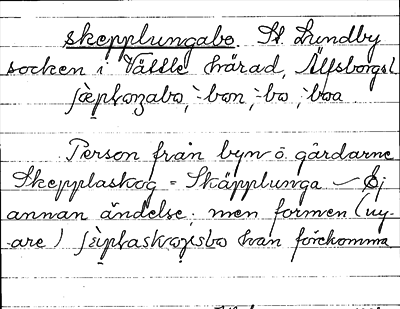 skepplungabo. St Lundby
socken i Vättle härad, Älfsborgsl
Person från byn o. gårdarne
Skepplaskog - Skäpplunga – Ej
annan ändelse; men formen (ny-
-are) kan förekomma